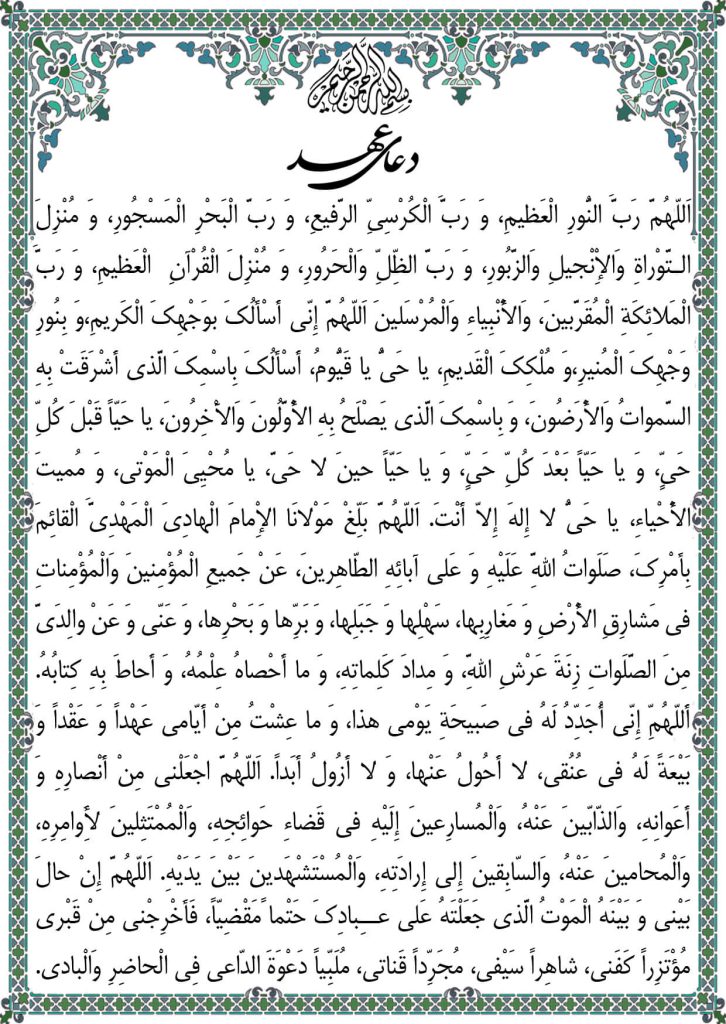 بسم الله الرحمن الرحیم
دعای عهد
اَللّهُمَّ رَبَّ النُّورِ الْعَظیمِ، وَ رَبَّ الْكُرْسِیِّ الرَّفیعِ، وَ رَبَّ الْبَحْرِ الْمَسْجُورِ، وَ مُنْزِلَ
التَّوْراةِ وَالاِْنْجیلِ وَالزَّبُورِ، وَ رَبَّ الظِّلِّ وَالْحَرُورِ، وَ مُنْزِلَ الْقُرْآنِ الْعَظیمِ، وَ رَبَّ
الْمَلائِكَةِ الْمُقَرَّبینَ، وَالاَْنْبِیاءِ وَالْمُرْسَلینَ اَللّهُمَّ إِنّی أَسْأَلُکَ بِوَجْهِکَ الْكَریمِ،وَ بِنُورِ
وَجْهِکَ الْمُنیرِ،وَ مُلْكِکَ الْقَدیمِ، یا حَیُّ یا قَیُّومُ، أَسْأَلُکَ بِاسْمِکَ الَّذی أَشْرَقَتْ بِهِ
السَّمواتُ وَالاَْرَضُونَ، وَ بِاسْمِکَ الَّذی یَصْلَحُ بِهِ الاَْوَّلُونَ وَالاْخِرُونَ، یا حَیّاً قَبْلَ كُلِّ
حَیٍّ، وَ یا حَیّاً بَعْدَ كُلِّ حَیٍّ، وَ یا حَیّاً حینَ لا حَیَّ، یا مُحْیِیَ الْمَوْتی، وَ مُمیتَ
الاَْحْیاءِ، یا حَیُّ لا إِلهَ إِلاّ أَنْتَ. اَللّهُمَّ بَلِّغْ مَوْلانَا الاِْمامَ الْهادِیَ الْمَهْدِیَّ الْقائِمَ
بِأَمْرِکَ، صَلَواتُ اللهِ عَلَیْهِ وَ عَلی آبائِهِ الطّاهِرینَ، عَنْ جَمیعِ الْمُؤْمِنینَ وَالْمُؤْمِناتِ
فی مَشارِقِ الاَْرْضِ وَ مَغارِبِها، سَهْلِها وَ جَبَلِها، وَ بَرِّها وَ بَحْرِها، وَ عَنّی وَ عَنْ والِدَیَّ
مِنَ الصَّلَواتِ زِنَةَ عَرْشِ اللهِ، وَ مِدادَ كَلِماتِهِ، وَ ما أَحْصاهُ عِلْمُهُ، وَ أَحاطَ بِهِ كِتابُهُ.
أَللّهُمَّ إِنّی أُجَدِّدُ لَهُ فی صَبیحَةِ یَوْمی هذا، وَ ما عِشْتُ مِنْ أَیّامی عَهْداً وَ عَقْداً وَ
بَیْعَةً لَهُ فی عُنُقی، لا أَحُولُ عَنْها، وَ لا أَزُولُ أَبَداً. اَللّهُمَّ اجْعَلْنی مِنْ أَنْصارِهِ وَ
أَعْوانِهِ، وَالذّابّینَ عَنْهُ، وَالْمُسارِعینَ إِلَیْهِ فی قَضاءِ حَوائِجِهِ، وَالْمُمْتَثِلینَ لاَِوامِرِهِ،
وَالْمُحامینَ عَنْهُ، وَالسّابِقینَ إِلی إِرادَتِهِ، وَالْمُسْتَشْهَدینَ بَیْنَ یَدَیْهِ. اَللّهُمَّ إِنْ حالَ
بَیْنی وَ بَیْنَهُ الْمَوْتُ الَّذی جَعَلْتَهُ عَلی عِبادِکَ حَتْماً مَقْضِیّاً، فَأَخْرِجْنی مِنْ قَبْری
مُؤْتَزِراً كَفَنی، شاهِراً سَیْفی، مُجَرِّداً قَناتی، مُلَبِّیاً دَعْوَةَ الدّاعی فِی الْحاضِرِ وَالْبادی.